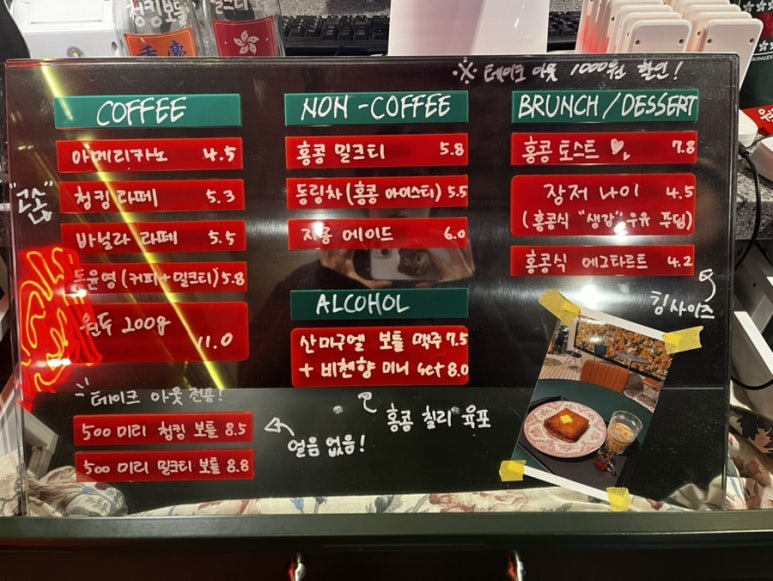 청킹보틀
밀크티
※ 테이크 아웃 1000원 할인!
COFFEE
아메리카노 4.5
"고소"
청킹 라떼 5.3
바닐라 라떼 5.5
동윤영 (커피+밀크티) 5.8
원두 200g 11.0
테이크 아웃 전용!
500 미리 청킹 보틀 8.5
500 미리 밀크티 보틀 8.8
얼음 없음!
NON-COFFEE
홍콩 밀크티 5.8
동링차 (홍콩 아이스티) 5.5
자몽 에이드 6.0
ALCOHOL
산미구엘 보틀 맥주 7.5
+ 비첸향 미니 set 8.0
홍콩 칠리 육포
BRUNCH/DESSERT
홍콩 토스트 ♥ 7.8
장저 나이 4.5
(홍콩식 "생강" 우유 푸딩)
홍콩식 에그타르트 4.2
킹 사이즈